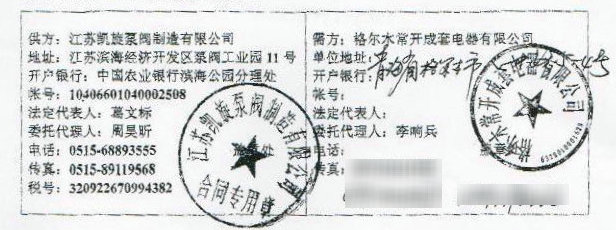 供方：江苏凯旋泵阀制造有限公司
地址：江苏滨海经济开发区泵阀工业园 11 号
开户银行：中国农业银行滨海公园分理处
帐号：10406601040002508
法定代表人：葛文标
委托代理人：周昊昕
电话：0515-68893555
传真：0515-89119568
税号：320922670994382
江苏凯旋泵阀制造有限公司
合同专用章
需方：格尔水常开成套电器有限公司
单位地址：青海省格尔木市
开户银行：
帐号：
法定代表人：
委托代理人：李响兵
电话：
传真：
格尔水常开成套电器有限公司